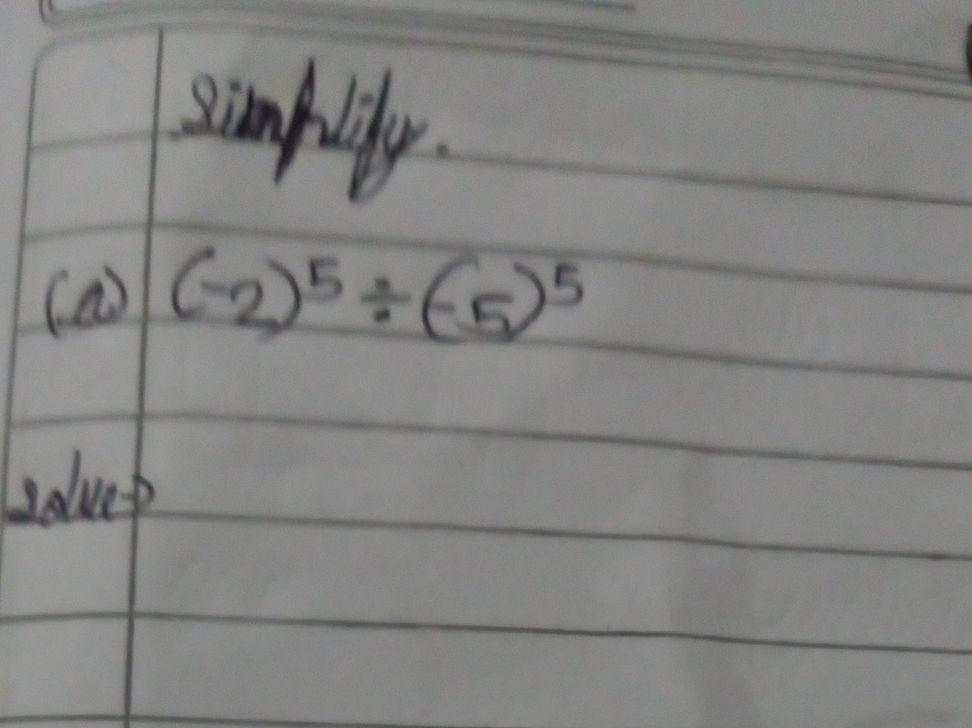 Simplify.
(a) (-2)⁵ ÷ (-5)⁵
solve→